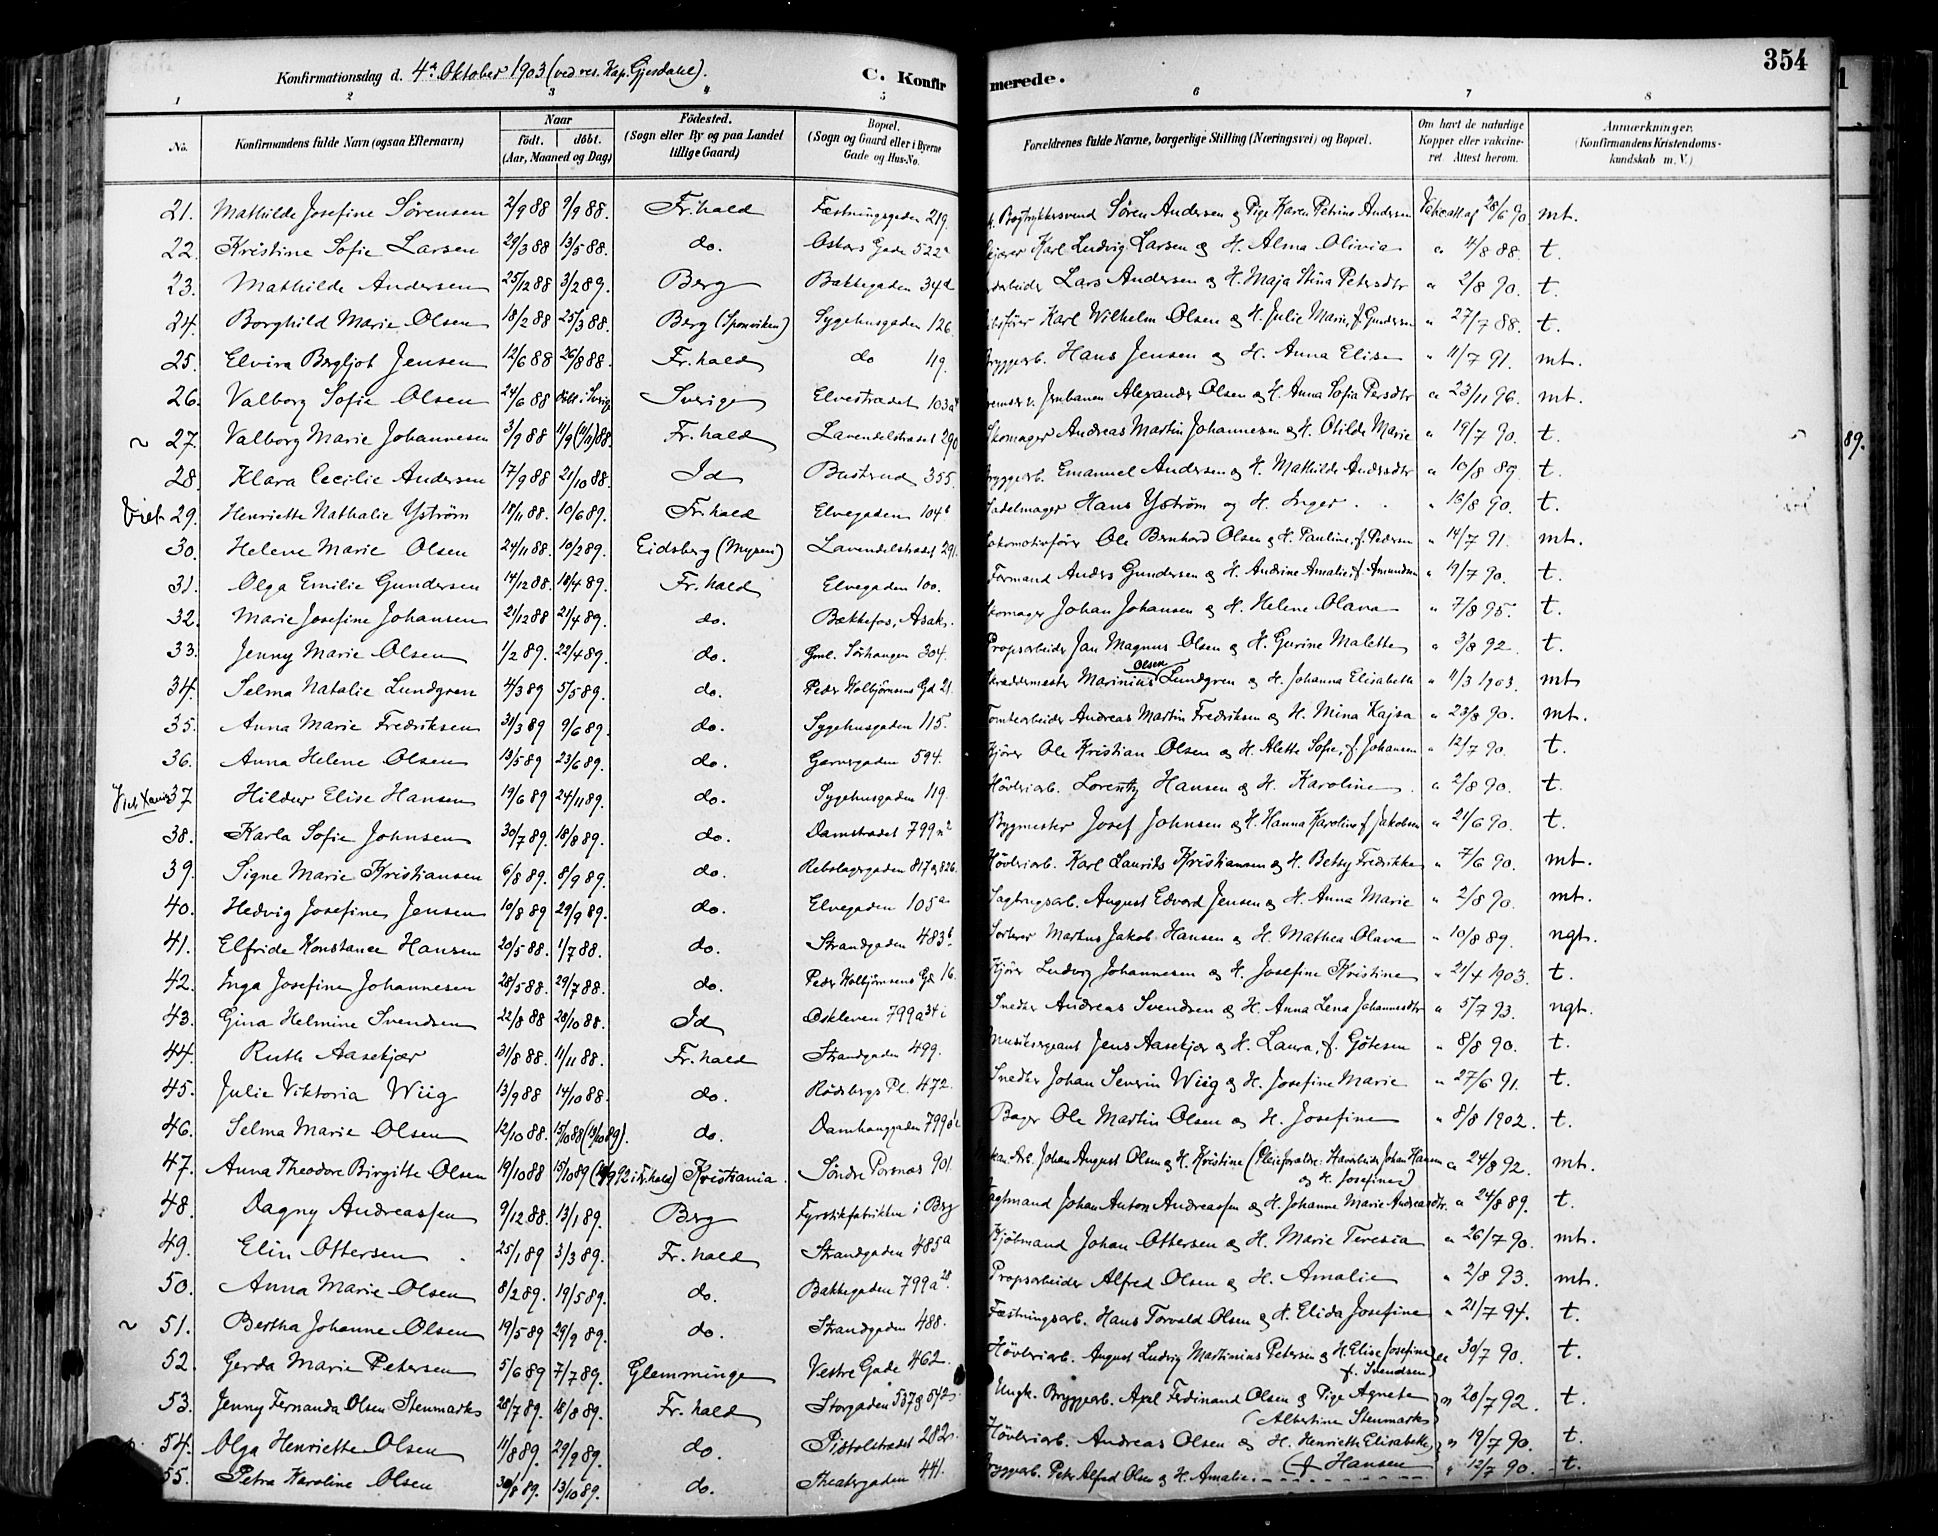 354
Konfirmationsdag d. 4de Oktober 1903 (ved res. Kap. Gjesdahl).
C. Konfir merede.
1 2 3 4 5 6 7 8
No. Konfirmandens fulde Navn (ogsaa Efternavn) Naar födt. döbt. (Aar, Maaned og Dag) Födested. (Sogn eller By og paa Landet tillige Gaard) Bopæl. (Sogn og Gaard eller i Byerne Gade og Hus-No. Forældrenes fulde Navne, borgerlige Stilling (Næringsvei) og Bopæl. Om havt de naturlige Kopper eller vakcineret. Attest herom. Anmærkninger. (Konfirmandens Kristendomskundskab m. V.)
21. Mathilde Josefine Sörensen 2/9 88 9/9 88. Fr.hald Fæstningsgaden 219. Bogtrykkersvend Sören Andersen og Pige Karen Petrine Andersen 28/6 90 mt.
22. Kristine Sofie Larsen 29/3 88 13/5 88. do. Oskars Gade 522a Karl Ludvig Larsen og H. Alma Olivia " 4/8 88. t.
23. Mathilde Andersen 25/12 88 3/2 89. Berg Bakkegaden 34d Lars Andersen og H. Maja Stina Petersdtr " 2/8 90. t.
24. Borghild Marie Olsen 18/2 88 25/3 88. Berg (Sponviken) Sygehusgaden 126. Karl Wilhelm Olsen og H. Julie Marie, f. Gundersen " 27/7 88. t.
25. Elvira Bergljot Jensen 12/6 88 26/8 88. Fr.hald do 119. Bryggerarb. Hans Jensen og H. Anna Elise " 11/7 91. mt.
26. Valborg Sofie Olsen 24/6 88 döbt i Sverige Sverige Elvestrædet 103a Bremser v. Jernbanen Alexander Olsen og H. Anna Sofia Persdtr " 23/11 96. mt.
~ 27. Valborg Marie Johannesen 3/9 88 11/9 (4/11) 88. Fr.hald Lavendelstrædet 290 Skomager Andreas Martin Johannesen og H. Otilde Marie " 19/7 90. t.
28. Klara Cecilie Andersen 17/9 88 21/10 88. Id Busterud 355. Bryggerarb. Emanuel Andersen og H. Mathilde Andersdtr " 10/8 89. t.
Viet 29. Henriette Nathalie Yström 18/11 88. 10/6 89. Fr.hald Elvegaden 104b Sadelmager Hans Yström og H. Inger " 13/8 90. t.
30. Helene Marie Olsen 24/11 88. 10/2 89. Eidsberg (Mysen) Lavendelstrædet 291. Lokomotivförer Ole Bernhard Olsen og H. Pauline, f. Pedersen " 14/7 91. mt.
31. Olga Emilie Gundersen 14/12 88. 18/4 89. Fr.hald Elvegaden 100. Formand Anders Gundersen og H. Andrine Amalie, f. Amundsen " 19/7 90. t.
32. Marie Josefine Johansen 21/12 88 21/4 89. do. Bækkefos, Asak. Skomager Johan Johansen og H. Helene Olava " 7/8 95. t.
33. Jenny Marie Olsen 1/2 89. 22/4 89. do. Gml. Sörhaugen 304. Propsarbeider Jan Magnus Olsen og H. Gurine Malette " 3/8 92. t.
34. Selma Natalie Lundgren 4/3 89 5/5 89. do. Peder Kolbjörnsens Gd 21. Skræddermester Marinius Olsen Lundgren og H. Johanna Elisabeth " 11/3 1903. mt
35. Anna Marie Fredriksen 31/3 89 9/6 89. do. Sygehusgaden 115. Tomtearbeider Andreas Martin Fredriksen og H. Mina Kajsa " 23/8 90. mt.
36. Anna Helene Olsen 13/5 89 23/6 89. do. Garvergaden 594. Kjörer Ole Kristian Olsen og H. Alette Sofie, f. Johansen " 12/7 90. t.
37 Hildur Elise Hansen 19/6 89 24/11 89. do. Sygehusgaden 119. Hövleriarb. Lorentz Hansen og H. Karoline " 2/8 90. t.
38. Karla Sofie Johnsen 30/7 89. 18/8 89. do. Damstrædet 799 n2 Bygmester Josef Johnsen og H. Hanna Karoline f. Jakobsen " 21/6 90. t.
39. Signe Marie Kristiansen 6/8 89. 8/9 89. do. Rebslagergaden 817 og 826. Hövleriarb. Karl Laurits Kristiansen og H. Betsy Fredrikke " 7/6 90. mt.
40. Hedvig Josefine Jensen 10/8 89 29/9 89. do. Elvegaden 105a Sagbrugsarb. August Edvard Jensen og H. Anna Marie " 2/8 90. mt.
41. Elfride Konstance Hansen 20/5 88. 1/7 88. do. Strandgaden 483b. Sorterer Markus Jakob Hansen og H. Mathea Olava " 10/8 89. ngt.
42. Inga Josefine Johannesen 28/5 88. 29/7 88. do. Peder Kolbjörnsens Gd 16. Kjörer Ludvig Johannesen og H. Josefine Kristine " 21/4 1903. t.
43. Gina Helmine Svendsen 22/8 88 28/10 88. Id Oskleven 799a 34 i Snedker Andreas Svendsen og H. Anna Lena Johannesdtr " 5/7 93. ngt.
44. Ruth Aasekjær 31/8 88. 11/11 88. Fr.hald Strandgaden 499. Musiksergeant Jens Aasekjær og H. Laura, f. Götesen " 8/8 90. t.
45. Julie Viktoria Wiig 13/9 88 14/10 88. do. Rödsbergs Pl. 472. Snedker Johan Severin Wiig og H. Josefine Marie " 27/6 91. t.
46. Selma Marie Olsen 12/10 88. 15/10 88 (13/10 89). do. Damhauggaden 799 Bager Ole Martin Olsen og H. Josefine " 8/8 1902. t.
47. Anna Theodore Birgitte Olsen 19/10 88 15/10 89 (92 i Fr.hald) Kristiania. Söndre Porsnæs 901. Arb. Johan August Olsen og H. Kristine (Pleieforældre: Havnearbeider Johan Hansen " 24/8 92. mt.
og H. Josefine)
48. Dagny Andreassen 9/12 88. 13/1 89. Berg Fyrstikfabrikken i Berg Johan Anton Andreassen og H. Johanne Marie Andreasdtr. " 24/8 89. t.
49. Elin Ottersen 25/1 89 3/3 89. Fr.hald Strandgaden 485a Kjöbmand Johan Ottersen og H. Marie Teresia " 26/7 90. mt.
50. Anna Marie Olsen 8/2 89. 19/5 89. do. Bakkegaden 799a 28. Propsarbeider Alfred Olsen og H. Amalie " 2/8 93. mt.
~ 51. Bertha Johanne Olsen 19/5 89 29/9 89. do. Strandgaden 488. Fæstningsarb. Hans Torvald Olsen og H. Elida Josefine " 21/7 94. t.
52. Gerda Marie Petersen 5/6 89 7/7 89. Glemminge Vestre Gade 462. Hövleriarb. August Ludvig Martinius Petersen og H. Elise Josefine " 30/7 90. t.
f. Svendsen
53. Jenny Fernanda Olsen Stenmark 28/7 89. 18/8 89. Fr.hald Storgaden 537 og 542. Ungk. Bryggerarb. Axel Ferdinand Olsen og Pige Agnete " 20/7 92. t.
(Albertine Stenmark)
54. Olga Henriette Olsen 11/8 89. 29/9 89. do. Pistolstrædet 282. Hövleriarb. Andreas Olsen og H. Henriette Elisabeth " 19/7 90. t.
(f. Hansen
55. Petra Karoline Olsen 30/8 89. 13/10 89. do. Theatergaden 441. Bryggerarb. Peter Alfred Olsen og H. Amalie " 12/7 90. t.
89.